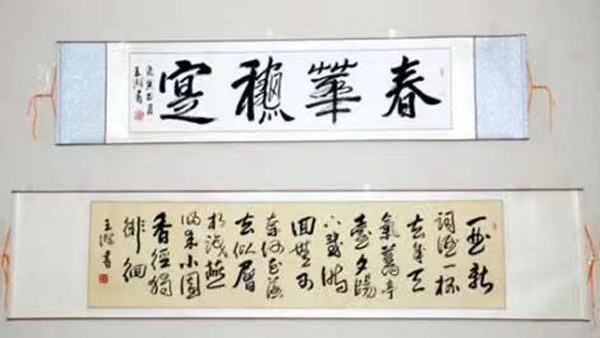 春華穐寔
一曲新
词酒一杯
去年天
氣舊亭
臺夕陽
西下幾时
回無可
奈何花落
去似曾
相识燕
归来小園
香徑獨
徘徊
王書